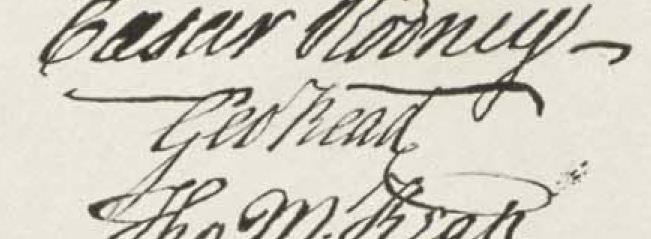 Cæsar Rodney
Geo Read
Tho M:Kean